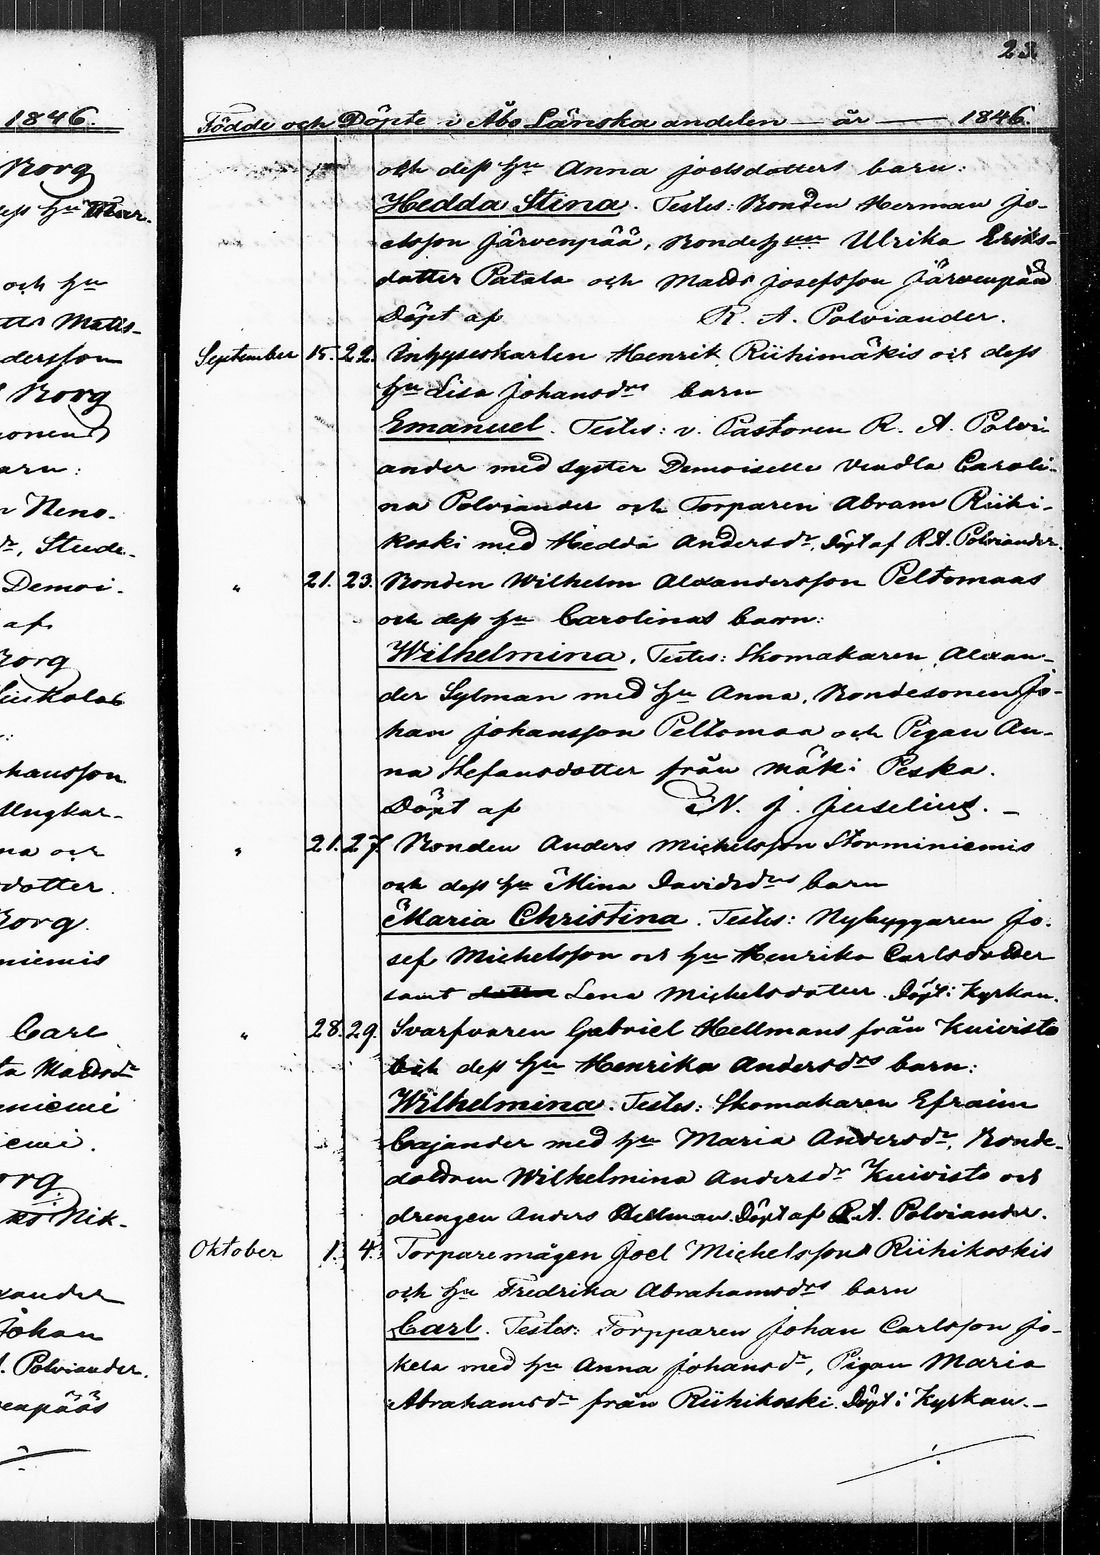 1846.
Borg
dess hu
och hu
Matts-
dersson
Borg
barn:
Neno-
Stude-
Demoi-
af
Borg
Niukolas
Johansson
Ungkar-
na och
dotter.
Borg.
niemis
Carl
ta Madsdr
niemi
niemi.
Borg
Nik-
xander
Johan
A. Polviander.
venpääs
23.
Födde och Döpte i Åbo Länska andelen år 1846.
och dess hu Anna Joelsdotters barn:
Hedda Stina. Testes: Bonden Herman Jo-
elsson Järvenpää, Bondehun Ulrika Eriks-
dotter Patala och Mads Josefsson Järvenpää
Döpt af R. A. Polviander.
September 15. 22. Inhyseskarlen Henrik Riihimäkis och dess
hu Lisa Johansdrs barn
Emanuel. Testes: v. Pastoren R. A. Polvi-
ander med syster Demoiselle Vendla Caroli-
na Polviander och Torparen Abram Riihi-
koski med Hedda Andersdr, Döpt af R.A. Polviander.
" 21. 23. Bonden Wilhelm Alexandersson Peltomaas
och dess hu Carolinas barn:
Wilhelmina. Testes: Skomakaren Alexan-
der Sylman med hu Anna, Bondesonen Jo-
han Johansson Peltomaa och Pigan An-
na Stefansdotter från Mäki Peska.
Döpt af N. J. Juselius. –
" 21. 27. Bonden Anders Michelsson Storminiemis
och dess hu Mina Davidsdrs barn
Maria Christina. Testes: Nybyggaren Jo-
sef Michelsson och hu Henrika Carlsdotter
samt Lena Michelsdotter. Döpt i Kyrkan.
" 28. 29. Svarfvaren Gabriel Hellmans från Kuivisto
och dess hu Henrika Andersdrs barn:
Wilhelmina. Testes: Skomakaren Efraim
Cajander med hu Maria Andersdr, Bonde-
dottren Wilhelmina Andersdr Kuivisto och
drengen Anders Hellman. Döpt af R.A. Polviander.
Oktober 1. 4. Torparemågen Joel Michelssons Riihikoskis
och hu Fredrika Abrahamsdrs barn
Carl. Testes: Torpparen Johan Carlsson Jo-
kela med hu Anna Johansdr, Pigan Maria
Abrahamsdr från Riihikoski. Döpt i Kyrkan. –